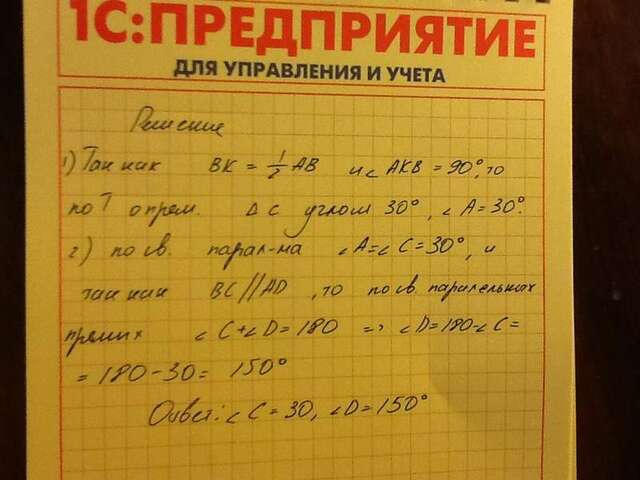 1С:ПРЕДПРИЯТИЕ
ДЛЯ УПРАВЛЕНИЯ И УЧЕТА
Решение
1) Так как BK = 1/2 AB и ∠ AKB = 90°, то
по Т о прям. Δ с углом 30°, ∠A = 30°.
2) по св. парал-ма ∠A = ∠C = 30°, и
так как BC // AD, то по св. паралельных
прямых ∠C + ∠D = 180 => ∠D = 180 - ∠C =
= 180 - 30 = 150°
Ответ: ∠C = 30, ∠D = 150°